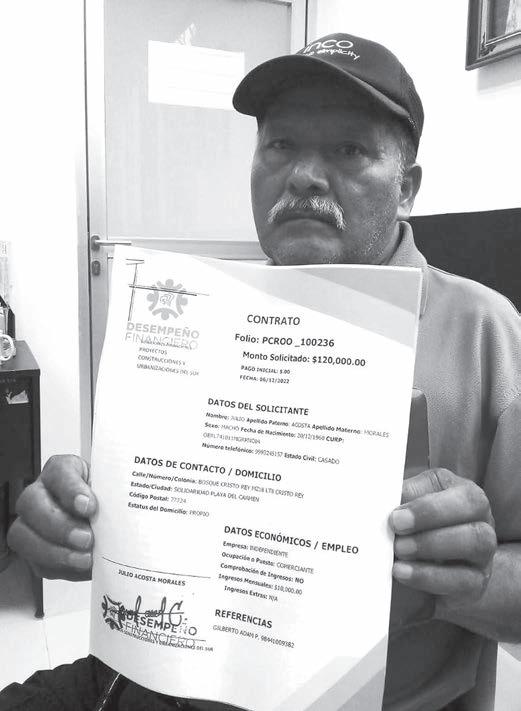 inco
simplicity
DESEMPEÑO
FINANCIERO
PROYECTOS
CONSTRUCCIONES Y
URBANIZACIONES DEL SUR
CONTRATO
Folio: PCROO _100236
Monto Solicitado: $120,000.00
PAGO INICIAL: $.00
FECHA: 06/12/2022
DATOS DEL SOLICITANTE
Nombre: JULIO Apellido Paterno: ACOSTA Apellido Materno: MORALES
Sexo: MACHO Fecha de Nacimiento: 20/12/1960 CURP:
Número telefónico: 9993245157 Estado Civil: CASADO
DATOS DE CONTACTO / DOMICILIO
Calle/Número/Colonia: BOSQUE CRISTO REY MZ16 LT8 CRISTO REY
Estado/Ciudad: SOLIDARIDAD PLAYA DEL CARMEN
Código Postal: 77724
Estatus del Domicilio: PROPIO
DATOS ECONÓMICOS / EMPLEO
Empresa: INDEPENDIENTE
Ocupación o Puesto: COMERCIANTE
Comprobación de Ingresos: NO
Ingresos Mensuales: $10,000.00
Ingresos Extras: N/A
REFERENCIAS
GILBERTO ADAM P. 98441009382
JULIO ACOSTA MORALES
DESEMPEÑO
FINANCIERO
CONSTRUCCIONES Y URBANIZACIONES DEL SUR